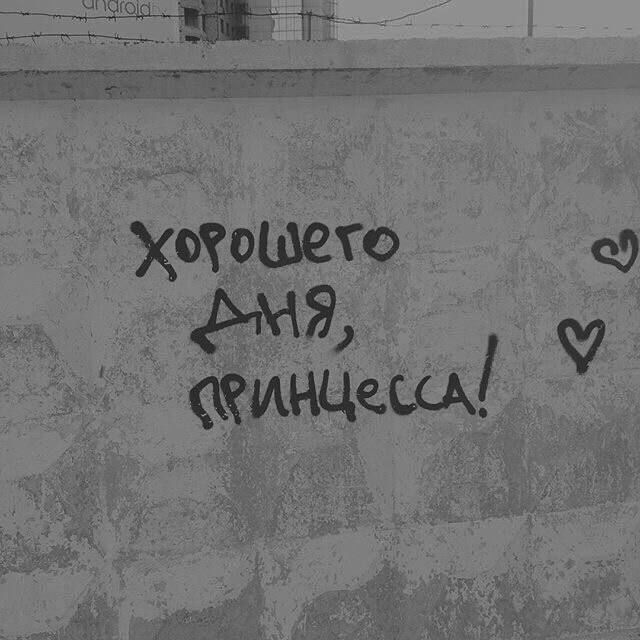 android
хорошего
дня,
принцесса!